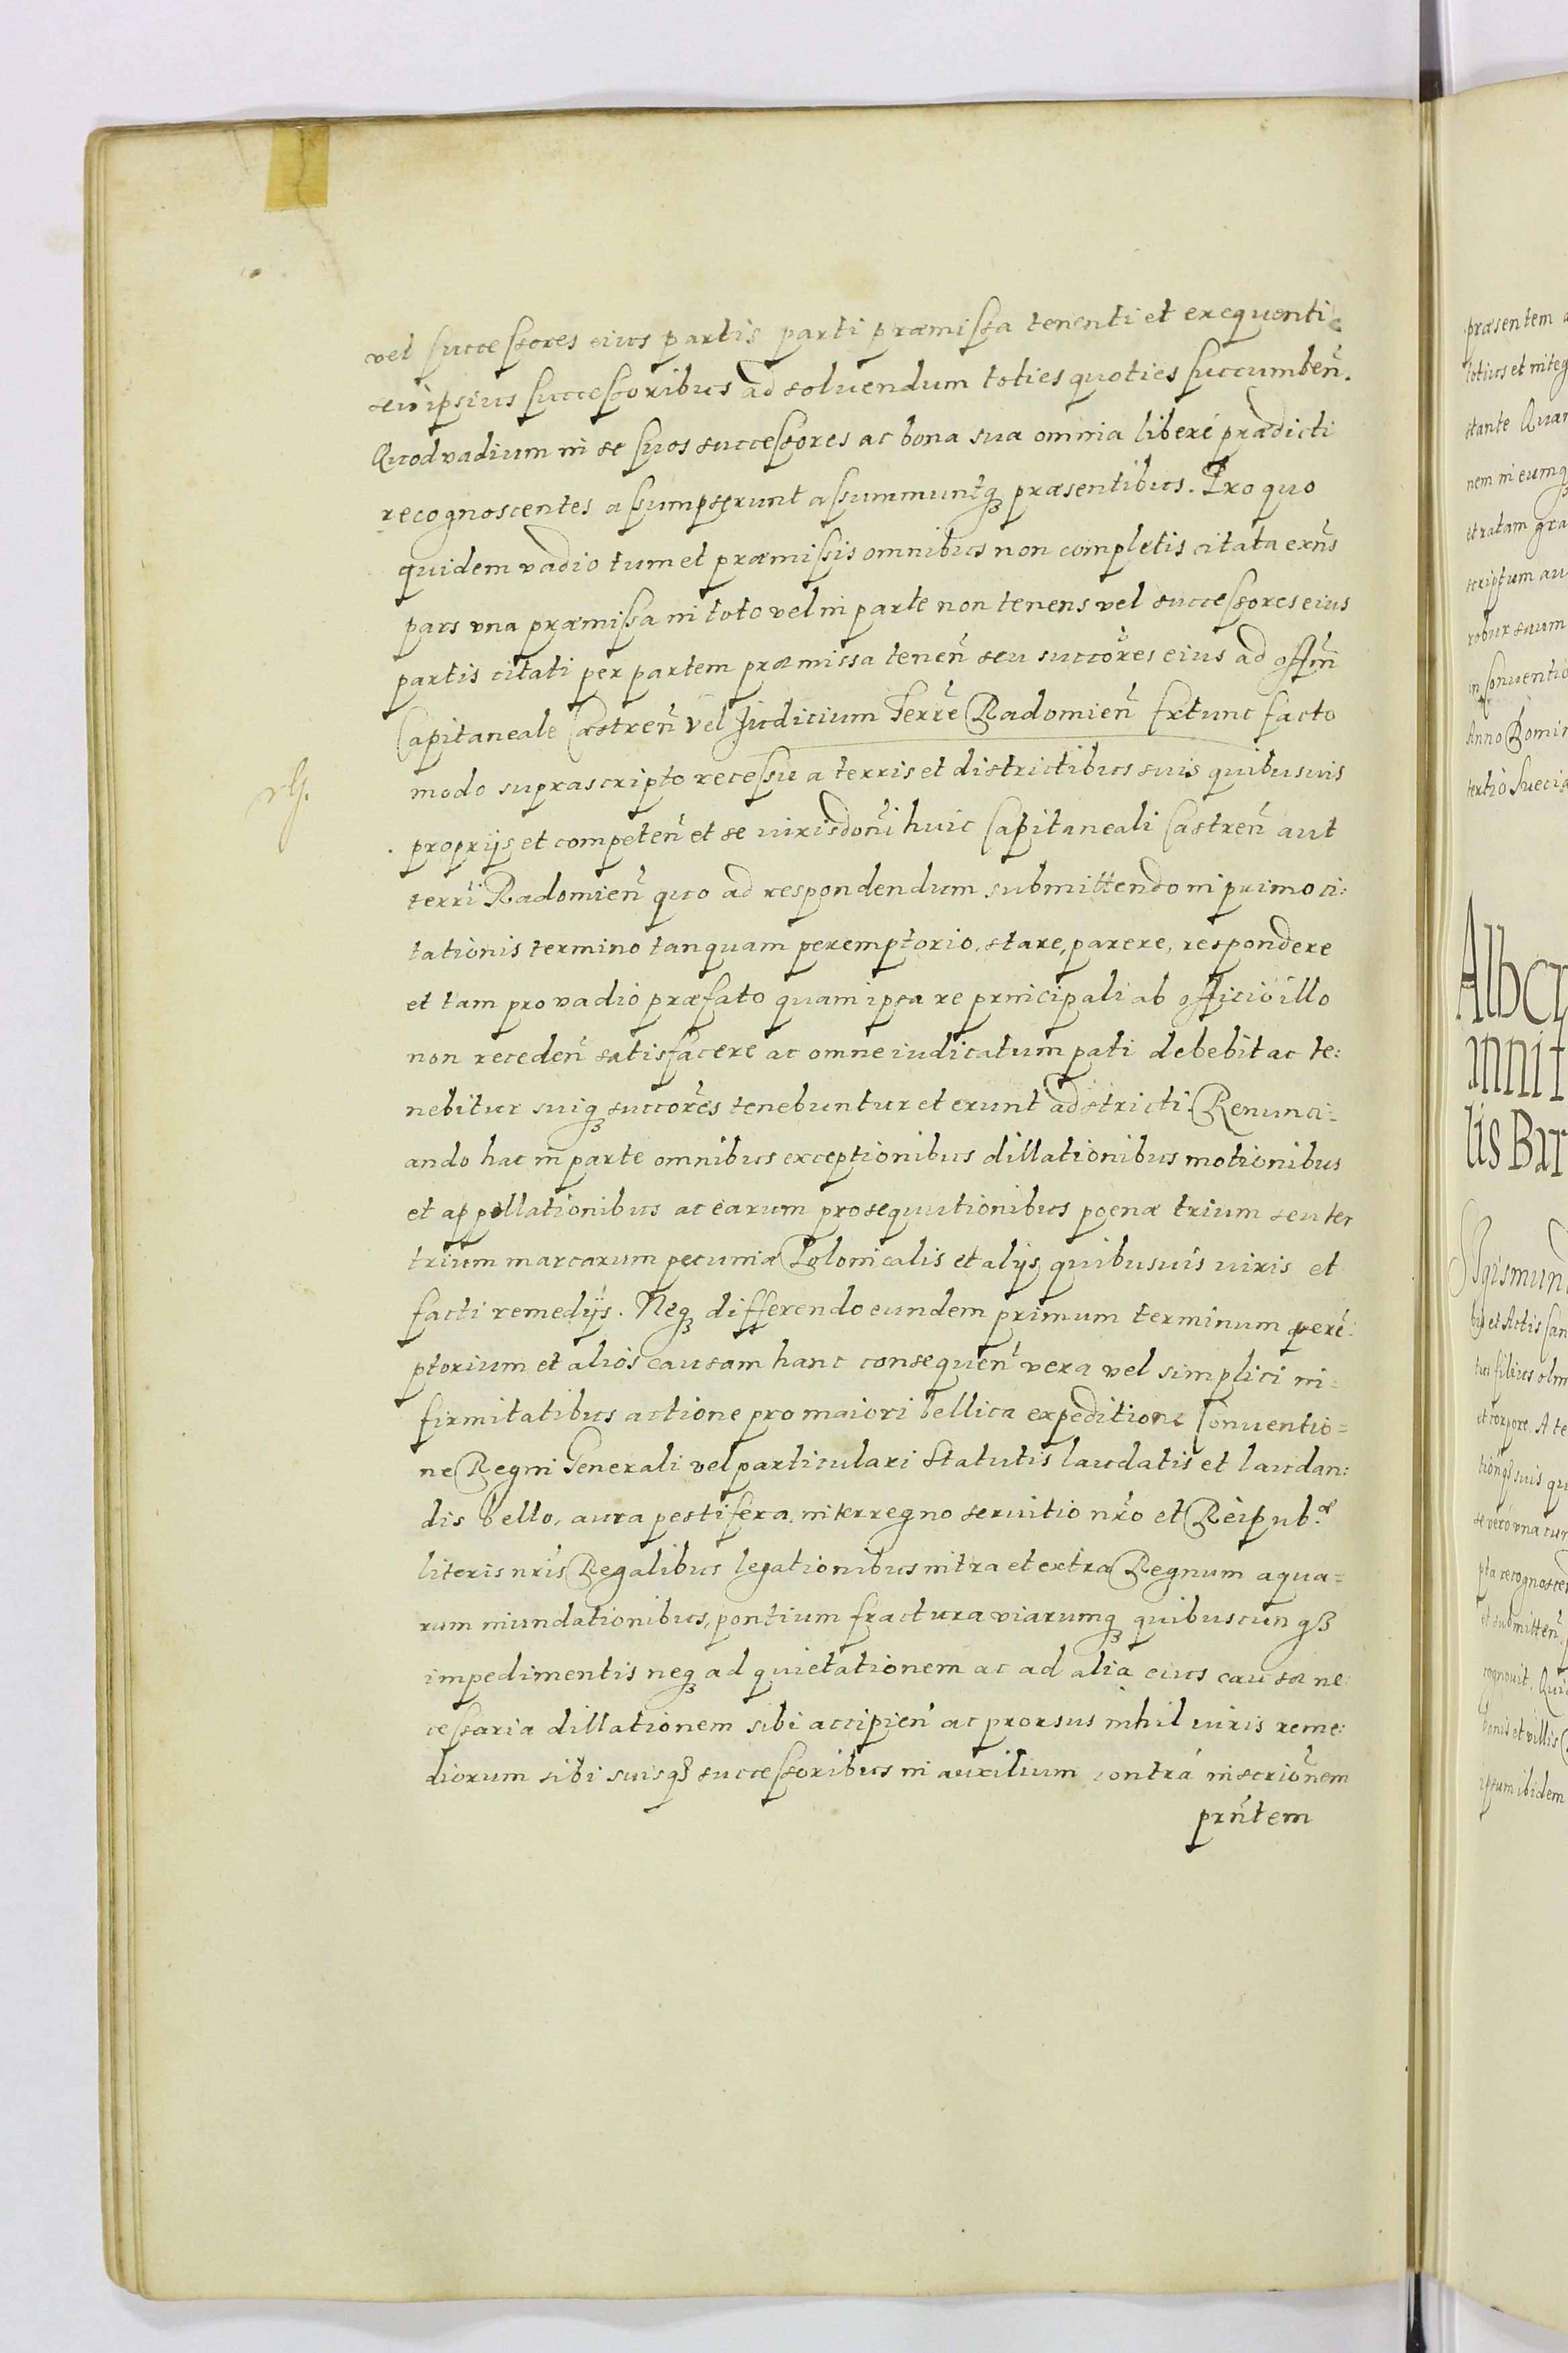 vel successores eius partis parti præmissa tenenti et exequenti
seu ipsius successoribus ad soluendum toties quoties succumbeñ.
Quod vadium in se suos successores ac bona sua omnia liberé prædicti
recognoscentes assumpserunt assummuntq₃ præsentibus. Pro quo
quidem vadio tum et præmissis omnibus non completis citata exñs
pars vna præmissa in toto vel in parte non tenens vel successores eius
partis citati per partem præmissa teneñ seu succőres eius ad offm̃
Capitaneale Castreñ vel Judicium Terr̃e Radomieñ Extunc facto
modo suprascripto recessu a terris et districtibus suis quibusuis
proprijs et competeñ et se iurisdoñi huic Capitaneali Castreñ aut
terr̃i Radomieñ quo ad respondendum submittendo in primo ci:
tationis termino tanquam peremptorio, stare, parere, respondere
et tam pro vadio præfato quam ipsa re principali ab officio illo
non recedeñ satisfacere ac omne iudicatum pati debebit ac te:
nebitur suiq₃ succor̃es tenebuntur et erunt adstricti. Renunci=
ando hac in parte omnibus exceptionibus dillationibus motionibus
et appellationibus ac earum prosequutionibus poenæ trium seu ter
trium marcarum pecuniæ Polonicalis et alijs quibusuis iuris et
facti remedijs. Neq₃ differendo eundem primum terminum perẽ:
ptorium et alios causam hanc consequeñ vera vel simplici in=
firmitatibus actione pro maiori bellica expeditione Conuentio=
ne Regni Generali vel particulari Statutis laudatis et laudan:
dis bello, aura pestifera, interregno seruitio nr̃o et Reipub.æ
literis nr̃is Regalibus legationibus intra et extra Regnum aqua=
rum inundationibus, pontium fractura viarumq₃ quibuscunq₃
impedimentis neq₃ ad quietationem ac ad alia eius causæ ne:
cessaria dillationem sibi accipieñ ac prorsus nihil iuris reme:
diorum sibi suisq₃ successoribus in auxilium contrá inscrioñem
prñtem
præsentem
totius et integ
stante Quam
nem in eumq
et ratam gra
scriptum au
robur suum
in Conuentio
Anno Domin
tertio Sueciæ
Alber
innit
lis Bar
Sigismun
bus et Actis Can
tus filius olim
et corpore. A te
tionq₃ suis qu
se veró vna cum
pta recognoscen
et submitteñ,
cognouit. Quia
bonis et villis
ipsum ibidem